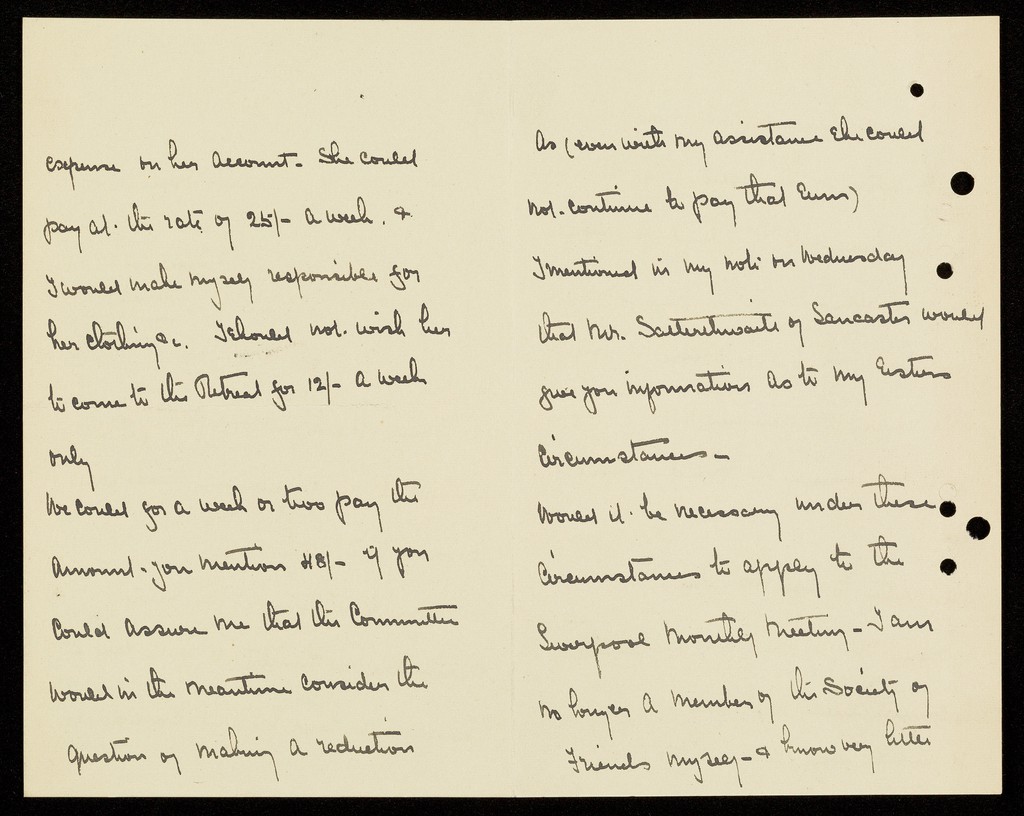 expense on her account - She could
pay at. the rate of 25/- a week. &
I would make myself responsible for
her clothing &c. I should not. wish her
to come to the Retreat for 12/- a week
only
We could for a week or two pay the
amount - you mention 48/- if you
could assure me that the Committee
would in the meantime consider the
question of making a reduction
As (even with my assistance she could
not. continue to pay that sum)
I mentioned in my note on Wednesday
that Mr. Satterthwaite of Lancaster would
give you information as to my sisters
circumstances -
Would it. be necessary under these
circumstances to apply to the
Liverpool Monthly Meeting - I am
no longer a member of the Society of
Friends myself - & know very little